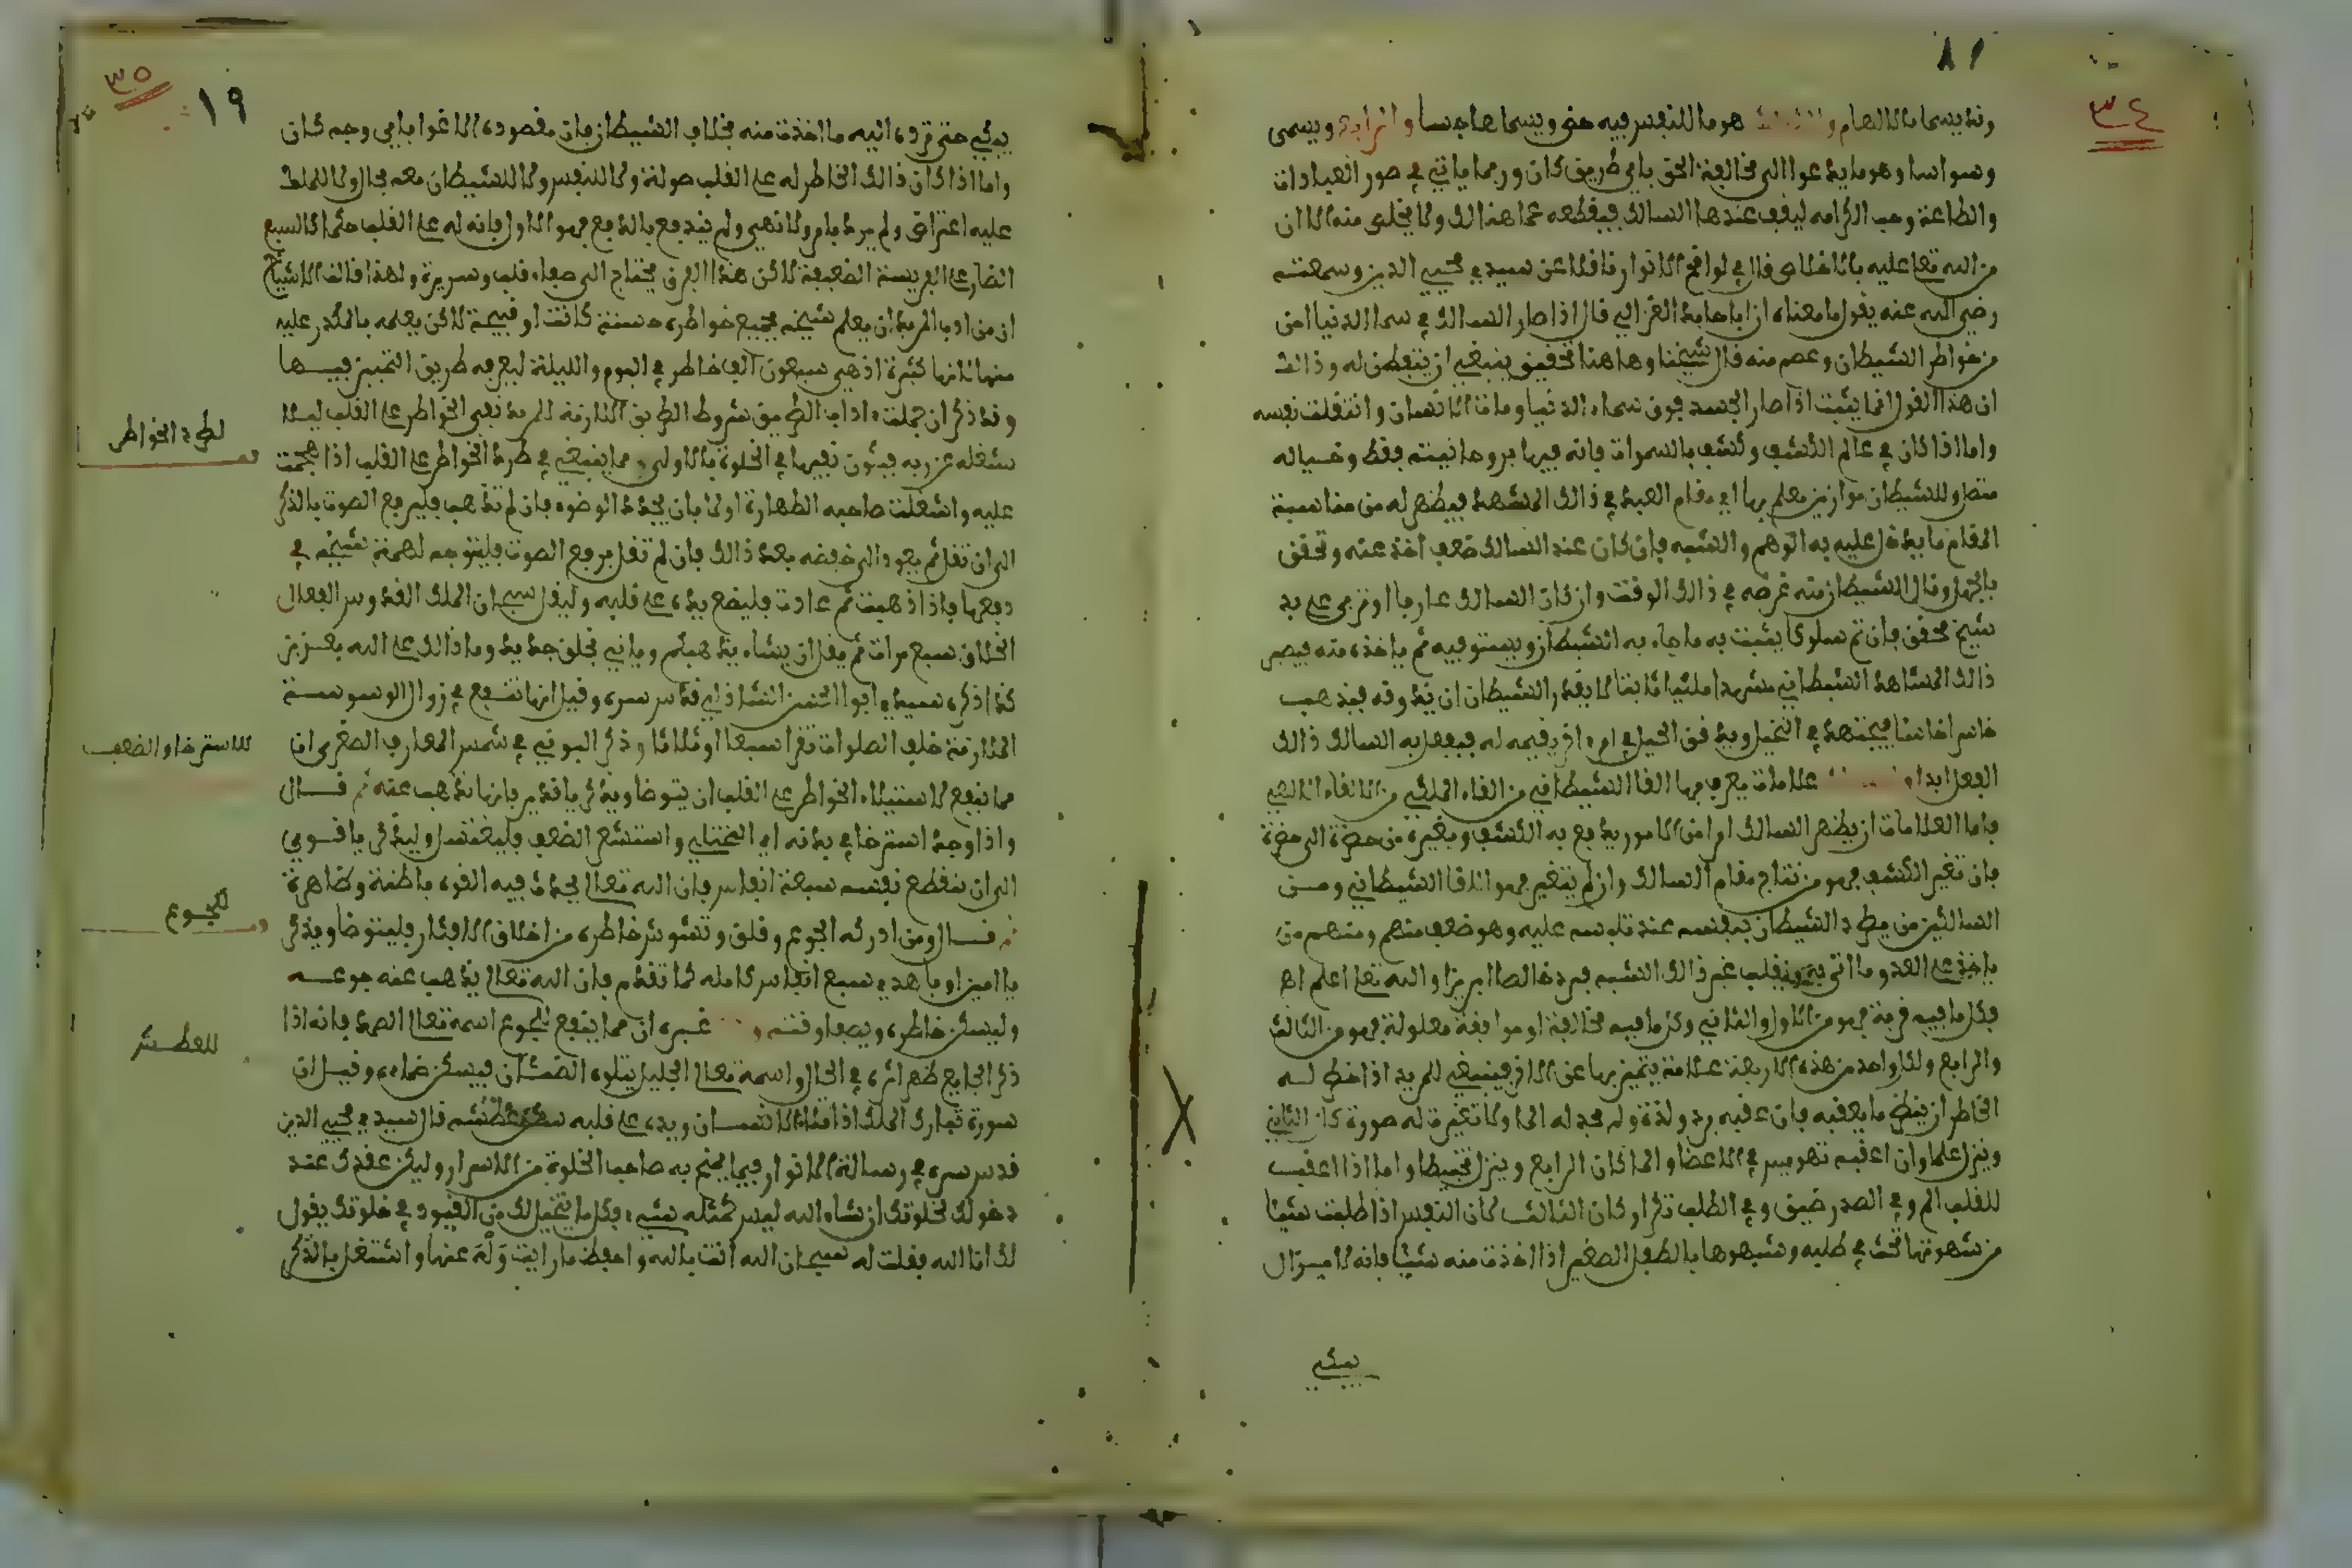 ٣٤
٨١
وقد يسما بالالهام و هو ما للنفس فيه حض ويسما هاجسا والرابع ويسمى
وسواسا وهو ما يدعوا الى مخالفة الحق باي طريق كان وربما ياتي في صور العبادات
والطاعة وحب الكرامة ليقف عندها السالك فيقطعه عما هنالك ولا يخلص منه الا ان
من الله تعا عليه بالاخلاص قال في لوافح الانوار ناقلا عن سيدي محيي الدين وسمعته
رضي الله عنه يقول ما معناه ان ابا حامد الغزالي قال اذا صار السالك في سما الدنيا امن
من خواطر الشيطان وعصم منه قال شيخنا وها هنا تحقيق ينبغي ان يتفطن له وذالك
ان هذا القول انما يثبت اذا صار الجسد فوق سماء الدنيا ومات الانسان وانتقلت نفسه
واما اذا كان في عالم الكشف وكشف بالسموات فانه فيها بروحانيته فقط وخياله
متصل وللشيطان موازين يعلم بها اين مقام العبد في ذالك المشهد فيظهر له من مناسبة
المقام ما يدخل عليه به الوهم والشبه فان كان عند السالك ضعف اخذ عنه وتحقق
بالجهل ونال الشيطان منه غرضه في ذالك الوقت وان كان السالك عارفا او تربى على يد
شيخ محقق فان ثم سلوكا يثبت به ما جاء به الشيطان ويستوفيه ثم ياخذه منه فيصير
ذالك المشاهد الشيطاني مشهدا ملكيا ثابتا لا يقدر الشيطان ان يدفعه فيذهب
خاسرا خاسئا فيجتهد في التخيل ويدقق الحيل في امر اخر يقيمه له فيفعل به السالك ذالك
الفعل ابدا علامات يعرف بها القا الشيطاني من القاء الملكي من الالقاء الالهي
فاما العلامات ان يظهر السالك امرا من الامور يدفع به الكشف ويغيره من حضرة الى حضرة
فان تغير الكشف فهو من نتاج مقام السالك وان لم يتغير فهو القا الشيطاني ومن
السالكين من يطرد الشيطان بنفسه عند تلبسه عليه وهو ضعف منهم ومنهم من
ياخذ على العدو ما اتى به ويقلب غير ذالك الشبه فيرد خالصا ابريزا والله تعا اعلم اه
فكل ما فيه قربة فهو من الاول والثاني وكل ما فيه مخالفة او موافقة معلولة فهو من الثالث
والرابع ولكل واحد من هذه الاربعة علامة يتميز بها عن الاخر فينبغي للمريد اذا خطر له
الخاطر ان ينظر ما يعقبه فان عقبه برد ولذة ولم يجد له الما ولا تغيرت له صورة كان الثاني
وينزل علما وان اعقبه تهويس في الاعضا والم كان الرابع وينزل تخبيطا واما اذا اعقب
للقلب الم وفي الصدر ضيق وفي الطلب تكرار كان الثالث لان النفس اذا طلبت شيئا
من شهوتها تحث في طلبه وشبهوها بالطفل الصغير اذا اخذت منه شيئا فانه لا يزال
يبكي
٣٥
١٩
يبكي حتى ترد اليه ما اخذت منه بخلاف الشيطان فان مقصوده الاغوا باي وجه كان
واما اذا كان ذالك الخاطر له على القلب صولة ولا للنفس ولا للشيطان معه مجال ولا للملك
عليه اعتراض ولم يرد بامر ولا نهي ولم يندفع بالدفع فهو الاول فانه له على القلب حكما كالسبع
الضار على الفريسة الضعيفة لاكن هذا الفرق يحتاج الى صفاء قلب وسريرة ولهذا قالت الاشياخ
ان من ادب المريد ان يعلم شيخه بجميع خواطره حسنة كانت او قبيحة لاكن يعلمه بالمتكرر عليه
منها لانها كثيرة اذ هي سبعون الف خاطر في اليوم والليلة ليعرفه طريق التمييز فيها
وقد ذكر ان جملة اداب الطريق شروط الطريق اللازمة للمريد نفي الخواطر على القلب ليلا
تشغله عن ربه فيكون نفيها في الخلوة بالاولى ومما ينبغي في طرد الخواطر على القلب اذا هجمت
عليه واشغلت صاحبه الطهارة اولا بان يجدد الوضوء فان لم تذهب فليرفع الصوت بالذكر
الى ان تقل ثم يعود الى خفضه بعد ذالك فان لم تقل برفع الصوت فليتوجه لهمة شيخه في
دفعها فاذا ذهبت ثم عادت فليضع يده على قلبه وليقل سبحان الملك القدوس الفعال
الخلاق سبع مرات ثم يقل ان يشاء يذهبكم ويات بخلق جديد وما ذالك على الله بعزيز
كذا ذكره سيدي ابو الحسن الشاذلي قدس سره وقيل انها تنفع في زوال الوسوسة
الملازمة خلف الصلوات تقرا سبعا او ثلاثا وذكر البوني في شمس المعارف الصغرى ان
مما ينفع لاستيلاء الخواطر على القلب ان يتوضا ويذكر يا قدير فانها تذهب عنه ثم قال
واذا وجد استرخا في بدنه اي المختلي واستشعر الضعف فليغتسل وليذكر يا قوي
الى ان ينقطع نفسه سبعة انفاس فان الله تعالى يحدث فيه القوة باطنة وظاهرة
ثم قال ومن ادركه الجوع وقلق وتشوش خاطره من اخلاق الافكار فليتوضا ويذكر
يا امين او يا هدي سبع انفاس كاملة كما تقدم فان الله تعالى يذهب عنه جوعه
وليسكن خاطره ويصفا وقته و غيره ان مما ينفع للجوع اسمه تعالى الصمد فانه اذا
ذكر الجايع ظهر اثره في الحال واسمه تعالى الجليل يتلوه الضمئان فيسكن ضماءه وقيل ان
سورة تبارك الملك اذا تلاها الانسان ويده على قلبه سكن عطشه قال سيدي محيي الدين
قدس سره في رسالة الانوار فيما يمنح به صاحب الخلوة من الاسرار وليكن عقدك عند
دخولك لخلوتك ان شاء الله ليس كمثله شيء فكل ما يتخيل لك من القيود في خلوتك يقول
لك انا الله فقلت له سبحان الله انت بالله واحفظ ما رايت وَلْهَ عنها واشتغل بالذكر
لطرد الخواطر
للاسترخا والضعف
للجوع
للعطش